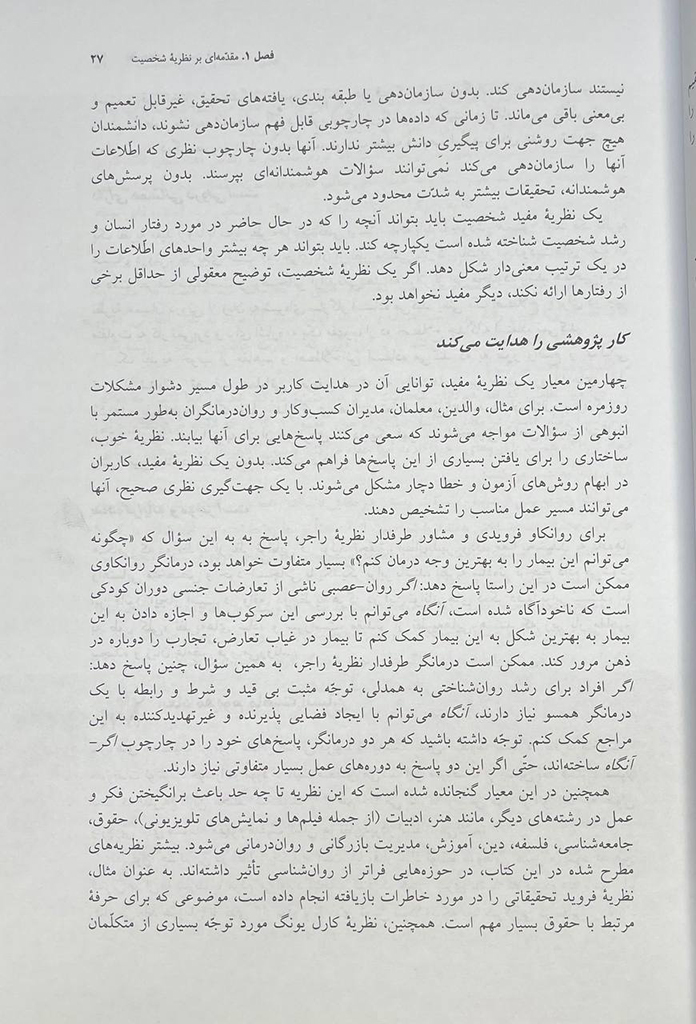 فصل ۱. مقدّمه‌ای بر نظریهٔ شخصیت ۲۷
نیستند سازمان‌دهی کند. بدون سازمان‌دهی یا طبقه بندی، یافته‌های تحقیق، غیرقابل تعمیم و
بی‌معنی باقی می‌ماند. تا زمانی که داده‌ها در چارچوبی قابل فهم سازمان‌دهی نشوند، دانشمندان
هیچ جهت روشنی برای پیگیری دانش بیشتر ندارند. آنها بدون چارچوب نظری که اطّلاعات
آنها را سازمان‌دهی می‌کند نمی‌توانند سؤالات هوشمندانه‌ای بپرسند. بدون پرسش‌های
هوشمندانه، تحقیقات بیشتر به شدّت محدود می‌شود.
یک نظریهٔ مفید شخصیت باید بتواند آنچه را که در حال حاضر در مورد رفتار انسان و
رشد شخصیت شناخته شده است یکپارچه کند. باید بتواند هر چه بیشتر واحدهای اطّلاعات را
در یک ترتیب معنی‌دار شکل دهد. اگر یک نظریهٔ شخصیت، توضیح معقولی از حداقل برخی
از رفتارها ارائه نکند، دیگر مفید نخواهد بود.
کار پژوهشی را هدایت می‌کند
چهارمین معیار یک نظریهٔ مفید، توانایی آن در هدایت کاربر در طول مسیر دشوار مشکلات
روزمره است. برای مثال، والدین، معلمان، مدیران کسب‌وکار و روان‌درمانگران به‌طور مستمر با
انبوهی از سؤالات مواجه می‌شوند که سعی می‌کنند پاسخ‌هایی برای آنها بیابند. نظریهٔ خوب،
ساختاری را برای یافتن بسیاری از این پاسخ‌ها فراهم می‌کند. بدون یک نظریهٔ مفید، کاربران
در ابهام روش‌های آزمون و خطا دچار مشکل می‌شوند. با یک جهت‌گیری نظری صحیح، آنها
می‌توانند مسیر عمل مناسب را تشخیص دهند.
برای روانکاو فرویدی و مشاور طرفدار نظریهٔ راجر، پاسخ به به این سؤال که «چگونه
می‌توانم این بیمار را به بهترین وجه درمان کنم؟» بسیار متفاوت خواهد بود، درمانگر روانکاوی
ممکن است در این راستا پاسخ دهد: اگر روان-عصبی ناشی از تعارضات جنسی دوران کودکی
است که ناخودآگاه شده است، آنگاه می‌توانم با بررسی این سرکوب‌ها و اجازه دادن به این
بیمار به بهترین شکل به این بیمار کمک کنم تا بیمار در غیاب تعارض، تجارب را دوباره در
ذهن مرور کند. ممکن است درمانگر طرفدار نظریهٔ راجر، به همین سؤال، چنین پاسخ دهد:
اگر افراد برای رشد روان‌شناختی به همدلی، توجّه مثبت بی قید و شرط و رابطه با یک
درمانگر همسو نیاز دارند، آنگاه می‌توانم با ایجاد فضایی پذیرنده و غیرتهدیدکننده به این
مراجع کمک کنم. توجّه داشته باشید که هر دو درمانگر، پاسخ‌های خود را در چارچوب اگر-
آنگاه ساخته‌اند، حتّی اگر این دو پاسخ به دوره‌های عمل بسیار متفاوتی نیاز دارند.
همچنین در این معیار گنجانده شده است که این نظریه تا چه حد باعث برانگیختن فکر و
عمل در رشته‌های دیگر، مانند هنر، ادبیات (از جمله فیلم‌ها و نمایش‌های تلویزیونی)، حقوق،
جامعه‌شناسی، فلسفه، دین، آموزش، مدیریت بازرگانی و روان‌درمانی می‌شود. بیشتر نظریه‌های
مطرح شده در این کتاب، در حوزه‌هایی فراتر از روان‌شناسی تأثیر داشته‌اند. به عنوان مثال،
نظریهٔ فروید تحقیقاتی را در مورد خاطرات بازیافته انجام داده است، موضوعی که برای حرفهٔ
مرتبط با حقوق بسیار مهم است. همچنین، نظریهٔ کارل یونگ مورد توجّه بسیاری از متکلّمان